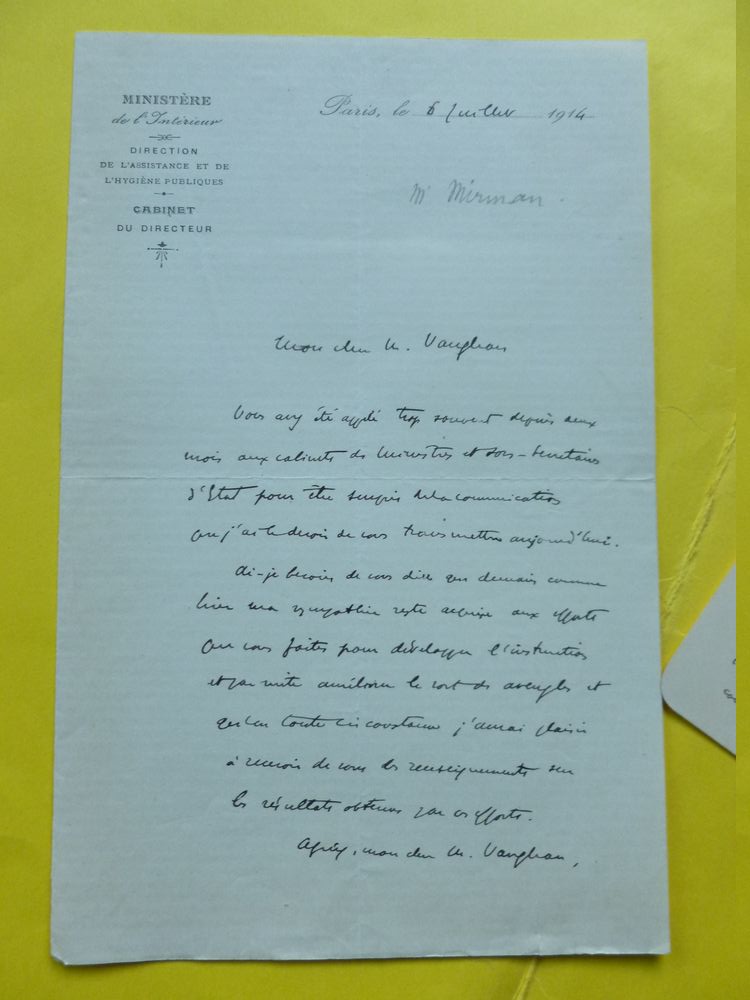 MINISTÈRE
de l'Intérieur
DIRECTION
DE L'ASSISTANCE ET DE
L'HYGIÈNE PUBLIQUES
CABINET
DU DIRECTEUR
Paris, le 6 Juillet 1914
Mr Mirman.
Mon cher M. Vaughan
Vous avez été appelé trop souvent depuis deux
mois aux cabinets de Ministres et Sous-Secrétaires
d'Etat pour être surpris de la communication
que j'ai le devoir de vous transmettre aujourd'hui.
Ai-je besoin de vous dire que demain comme
hier ma sympathie reste acquise aux efforts
que vous faites pour développer l'instruction
et par suite améliorer le sort des aveugles et
qu'en toute circonstance j'aurai plaisir
à recevoir de vous des renseignements sur
les résultats obtenus par ces efforts.
Agréez, mon cher M. Vaughan,